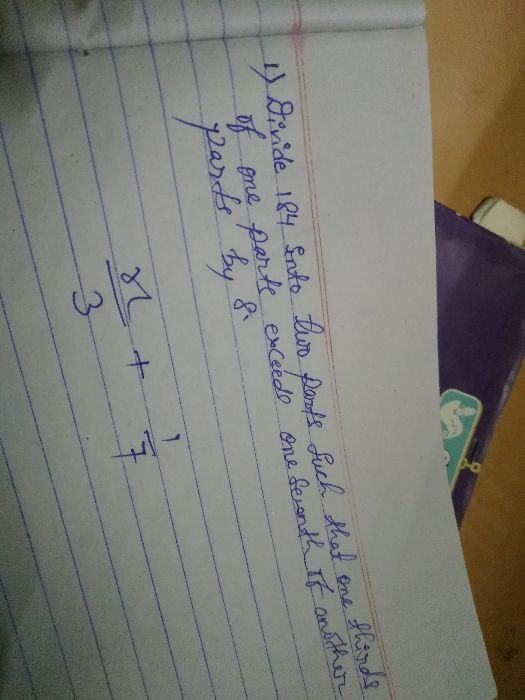 1) Divide 184 into two parts such that one thirds
of one parts exceeds one seventh of another
parts by 8.
x/3 + 1/7